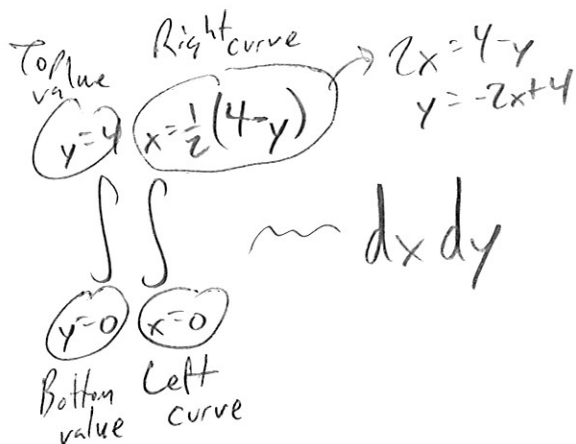 Top value
Right curve
y=4
x=½(4-y)
2x=4-y
y=-2x+4
∫∫ dx dy
y=0
x=0
Bottom value
Left curve